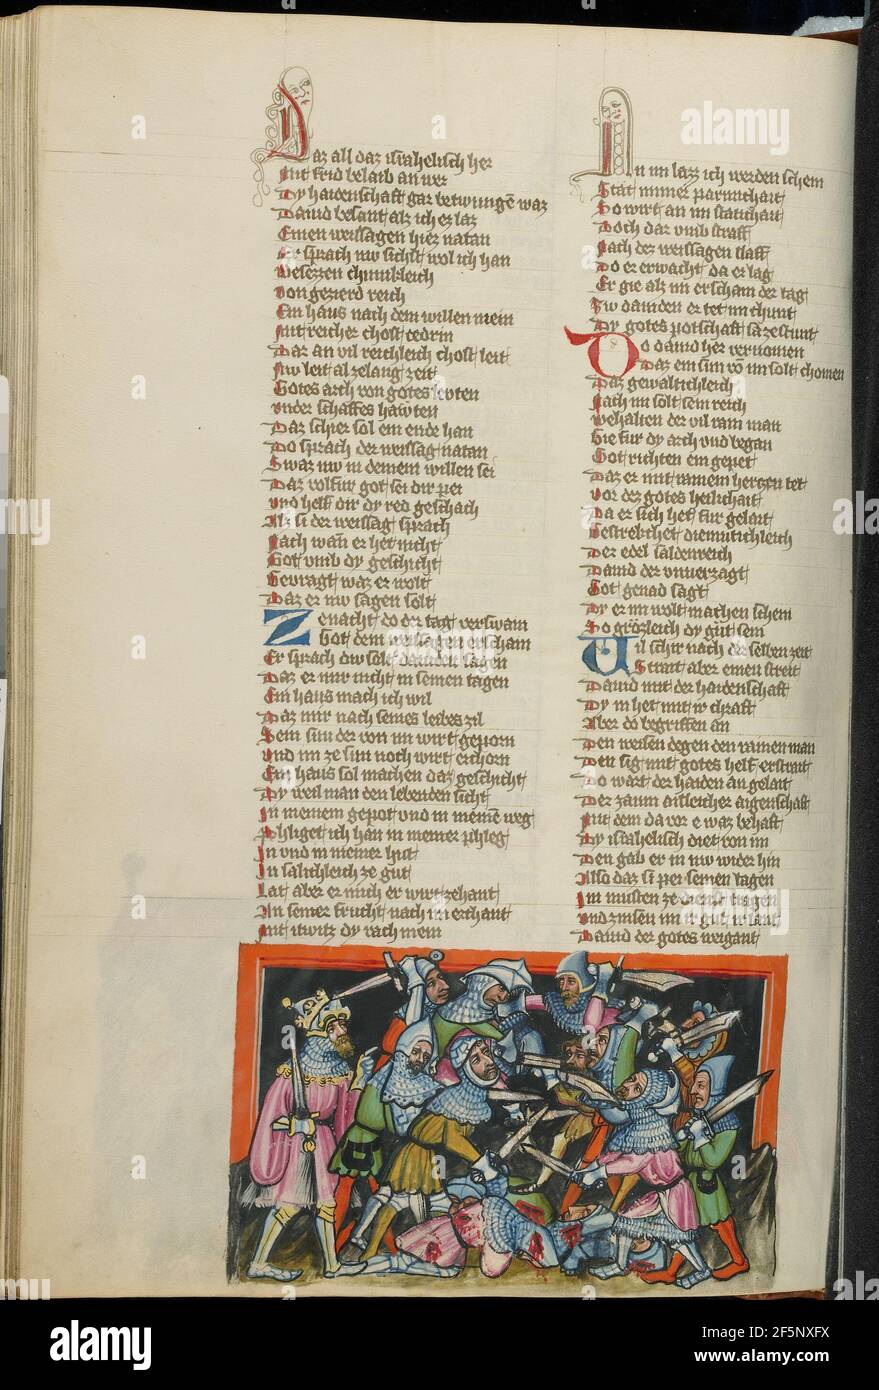 Daz all daz israhelisch her
Mit frid belaib an wer
Dy haidenschaft gar betwungē waz
Dauid besant alz ich ez laz
Einen weissagen hiez natan
Er sprach nw sichst wol ich han
Besezzen chunikleich
von gezierd reich
Ein haus nach dem willen mein
Mit reicher chost cedrin
Dar an vil reichleich chost leit
Nw leit al zelang zeit
Gotes arch von gotes lewten
vnder schaffes hawten
Daz schier sol ein ende han
Do sprach der weissag natan
Swaz nw in deinem willen sei
Daz volfur got sei dir pei
vnd helf dir dy red geschach
Alz si der weissag sprach
Nach wañ er het nicht
Got vmb dy geschicht
Gevragt waz er wolt
Daz er nw sagen solt
Ze nacht do der tag verswain
Got dem weissagen erscham
Er sprach dw solt dauiden sagen
Daz er mir nicht in seinen tagen
Ein haus mach ich wil
Daz mir nach seines leibes zil
Sein sun der von im wirt geporn
vnd im ze sun noch wirt erchorn
Ein haus sol machen daz geschicht
Dy weil man den lebenden sicht
In meinem gepot vnd in meinē weg
Phliget ich han in meiner phleg
In vnd in meiner hut
In salichleich ze gut
Lat aber er mich er wirt zehant
An seiner frucht nach im erchant
Mit itwitz dy rach mein
In im lazz ich werden schein
Stat immer parmchait
So wirt an im statichait
Doch dar vmb straff
Nach dez weissagen slaff
Do er erwacht da er lag
Er gie alz im erscham der tag
Sw dauiden er tet im chunt
Dy gotes potschaft sa zestunt
Do dauid her vernomen
Daz ein sun vō im solt chomen
Daz gewaltichleich
Nach im solt sein reich
wehalten der vil rain man
Gie fur dy arch vnd began
Got richten ein gepet
Daz er mit rainem hertzen tet
vor dez gotes heilichait
Da er sich het fur gelait
Gestrekchet diemutichleich
Der edel saldenreich
Dauid der vnuerzagt
Got genad sagt
Dy er im wolt machen schein
So grozleich dy gut sein
Vil schir nach der selben zeit
Strait aber einen streit
Dauid mit der haidenschaft
Dy in het mit ir chraft
Aber do begriffen an
Den weisen degen den rainen man
Den sig mit gotes helf erstrait
Do wart der haiden an gelait
Der zaum
Mit dem da vor e waz behaft
Dy israhelisch diet von im
Den gab er in nw wider hin
Also daz si pei seinen tagen
Im musten ze dienst tragen
vnd zinsen im ir gut ir lant
Dauid der gotes weigant
alamy
Image ID: 2F5NXFX
www.alamy.com